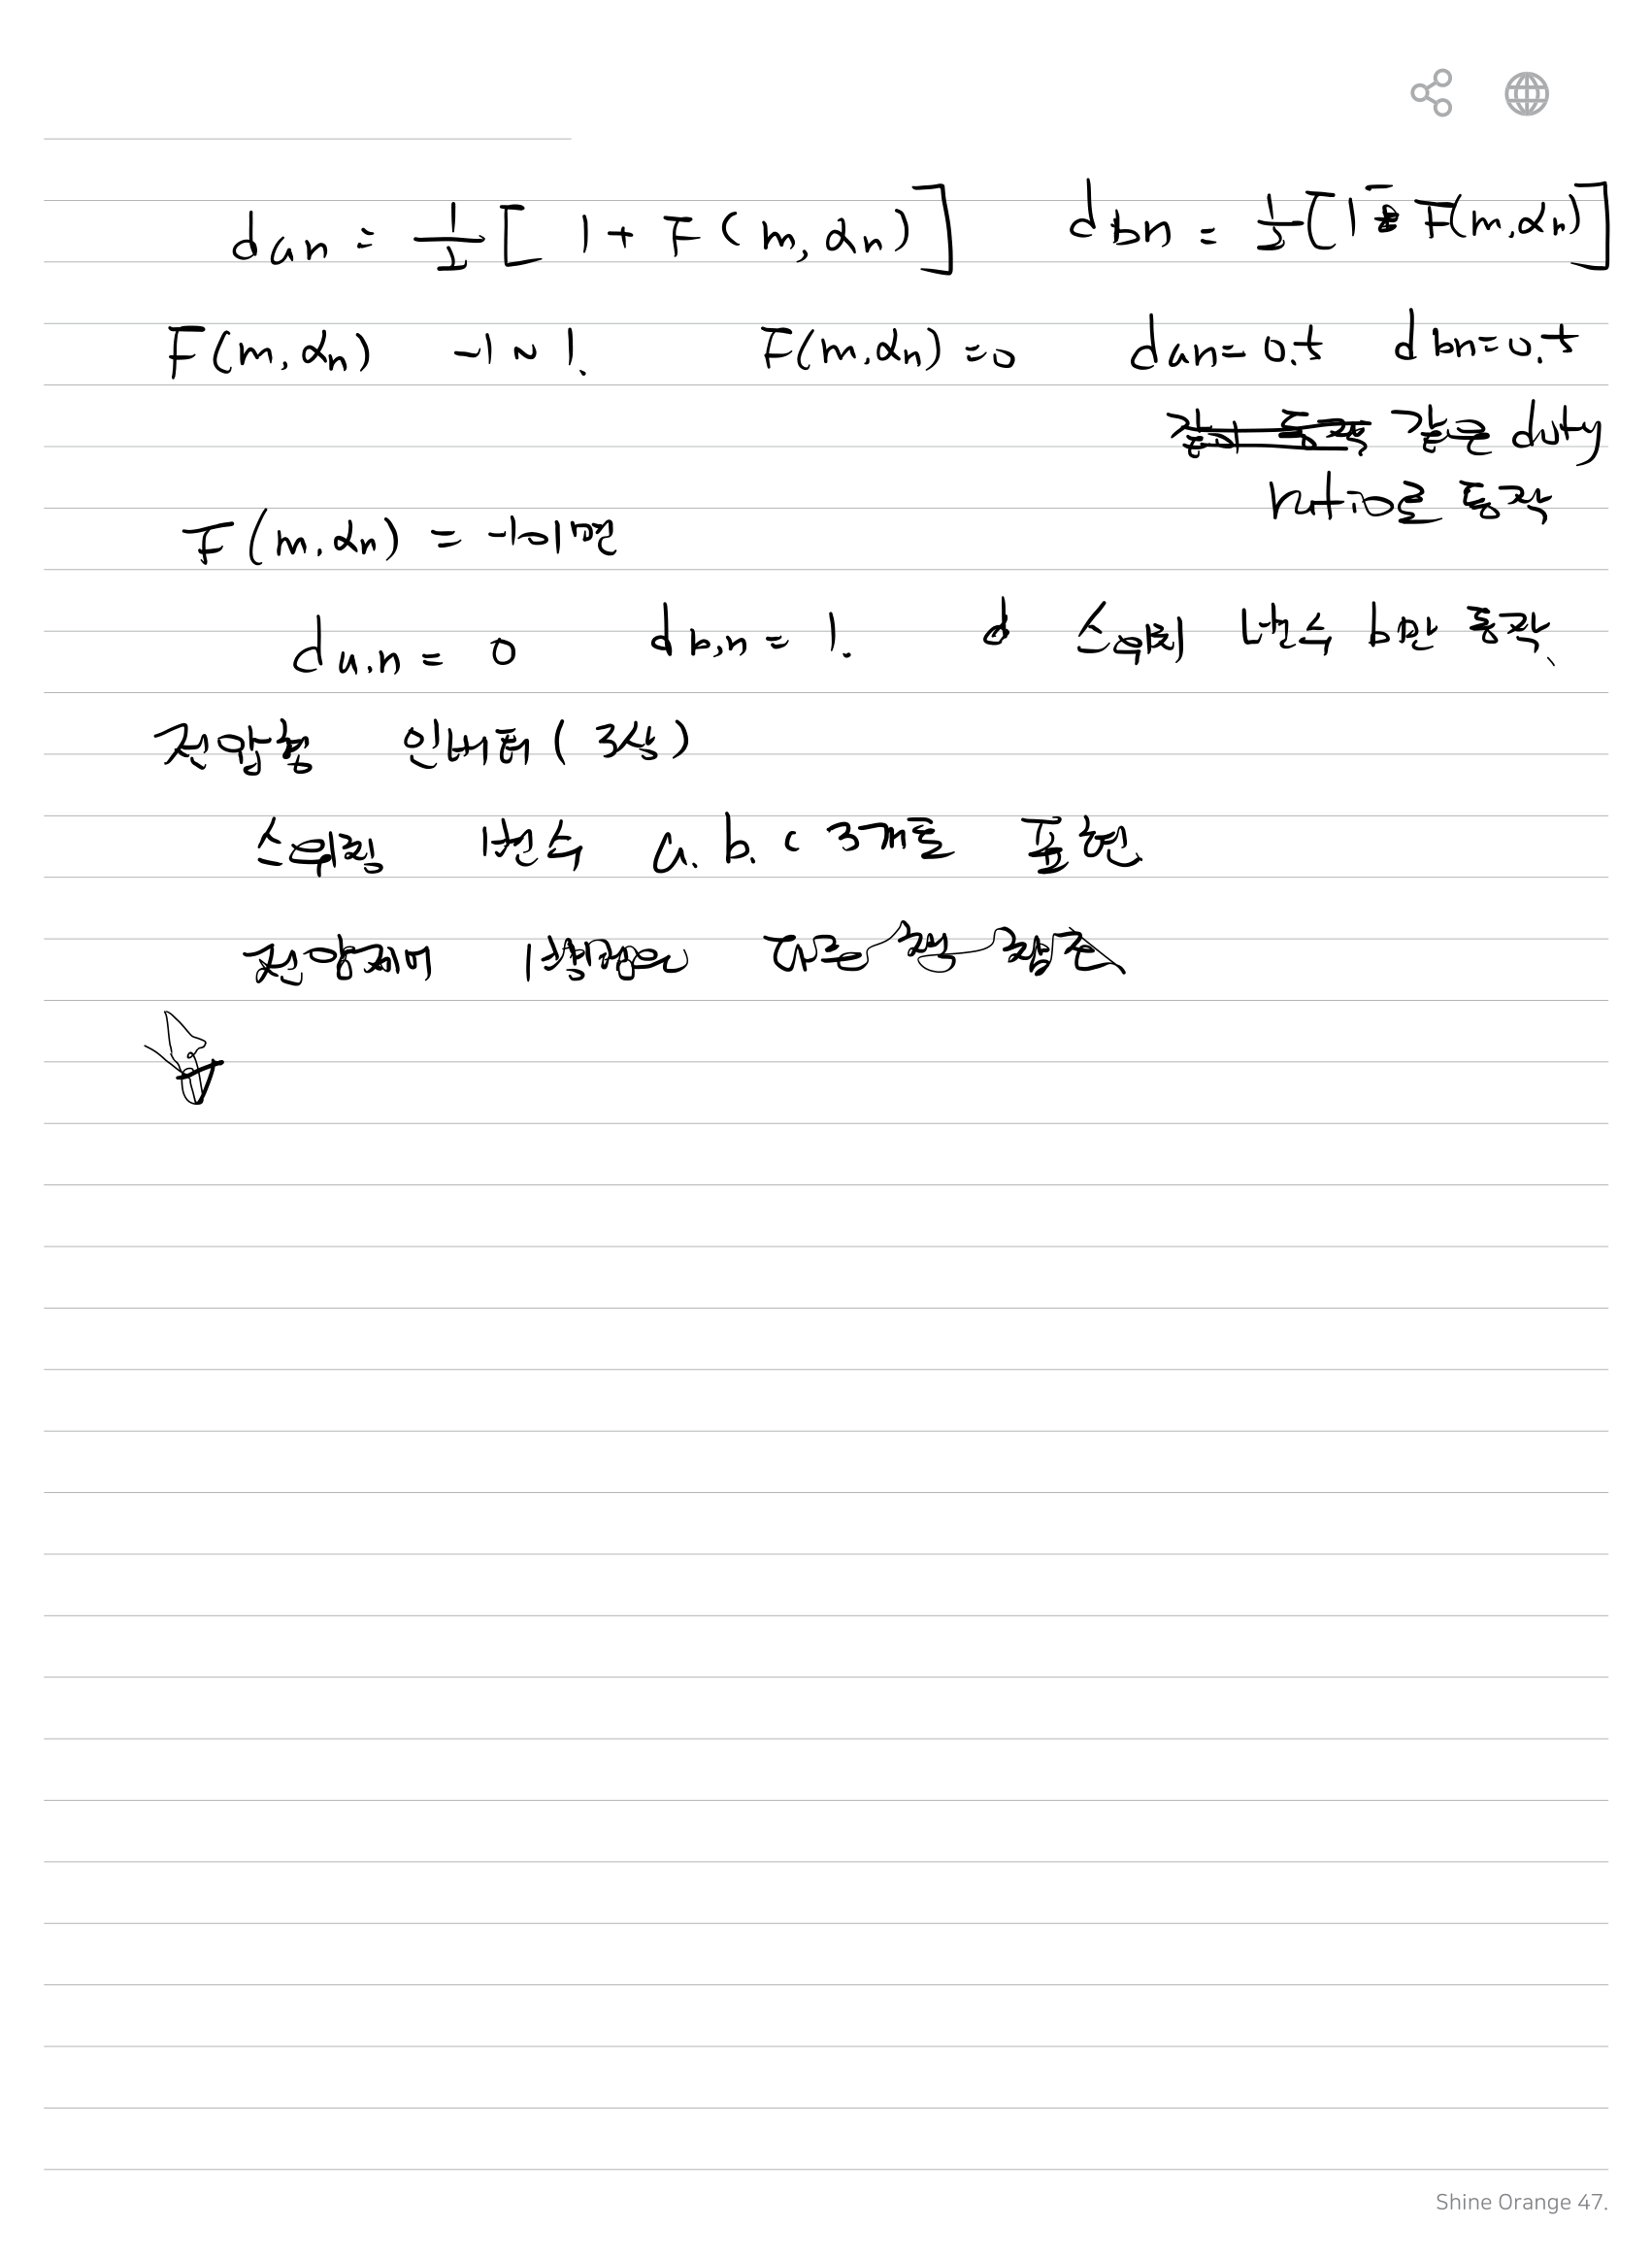 dan = 1/2 [ 1 + F ( m, αn ) ] dbn = 1/2 [ 1 - F(m, αn) ]
F(m, αn) -1 ~ 1. F(m, αn) = 0 dan = 0.5 dbn = 0.5
같은 duty
ratio로 동작
F(m, αn) = -1이면
da,n = 0 db,n = 1. d 스위칭 변수 b만 동작.
전압형 인버터 ( 3상 )
스위칭 변수 a. b. c 3개로 표현
전압제어
Shine Orange 47.